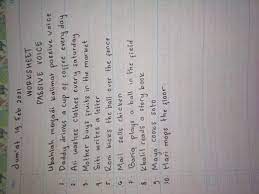 Jumat, 19 Feb 2021
WORKSHEET
PASSIVE VOICE
Ubahlah menjadi kalimat passive voice
1 Daddy drinks a cup of coffee every day
2 Ali washes clothes every saturday
3 Mother buys fruits in the market
4 Siti writes a letter
5 Roni kicks the ball over the fence
6 Mail sells chicken
7 Bang plays a ball in the field
8 Khalil reads a story book
9 Maya cooks soto
10 Hari mops the floor